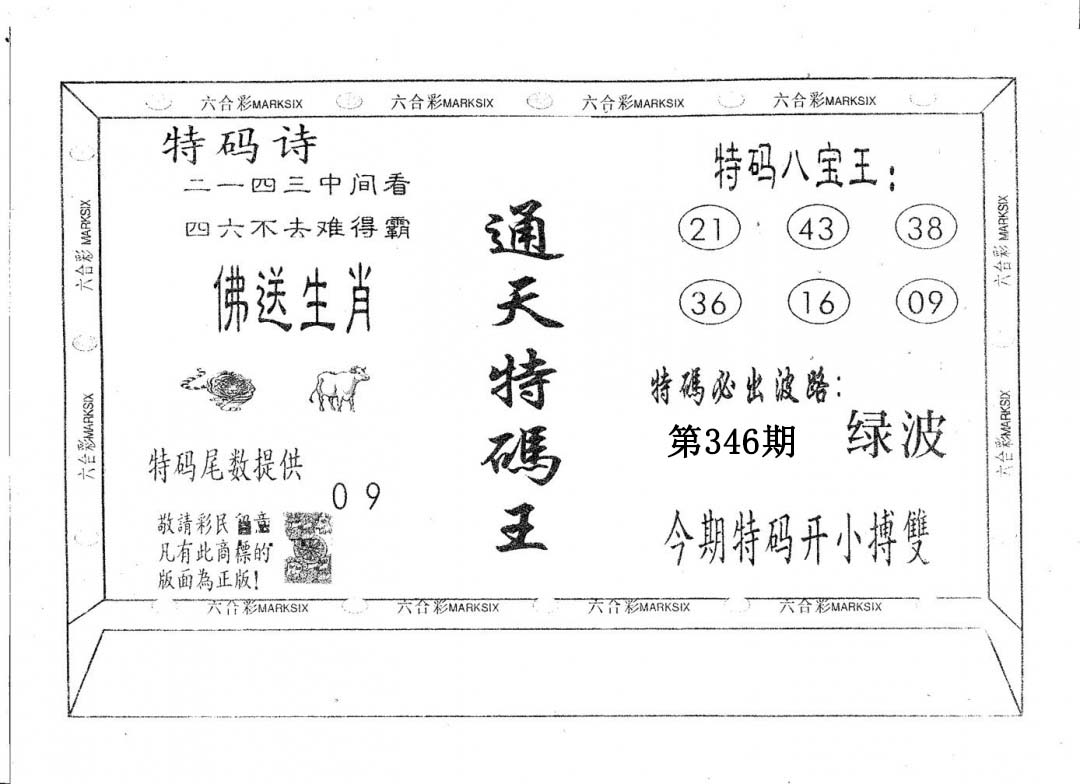 六合彩MARKSIX 六合彩MARKSIX 六合彩MARKSIX 六合彩MARKSIX
特码诗
二一四三中间看
四六不去难得霸
佛送生肖
特码尾数提供
09
敬請彩民留意
凡有此商標的
版面為正版!
通天特碼王
特码八宝王:
21 43 38
36 16 09
特碼必出波路:
第346期
绿波
今期特码开小搏雙
六合彩MARKSIX
六合彩MARKSIX
六合彩MARKSIX
六合彩MARKSIX
六合彩MARKSIX 六合彩MARKSIX 六合彩MARKSIX 六合彩MARKSIX